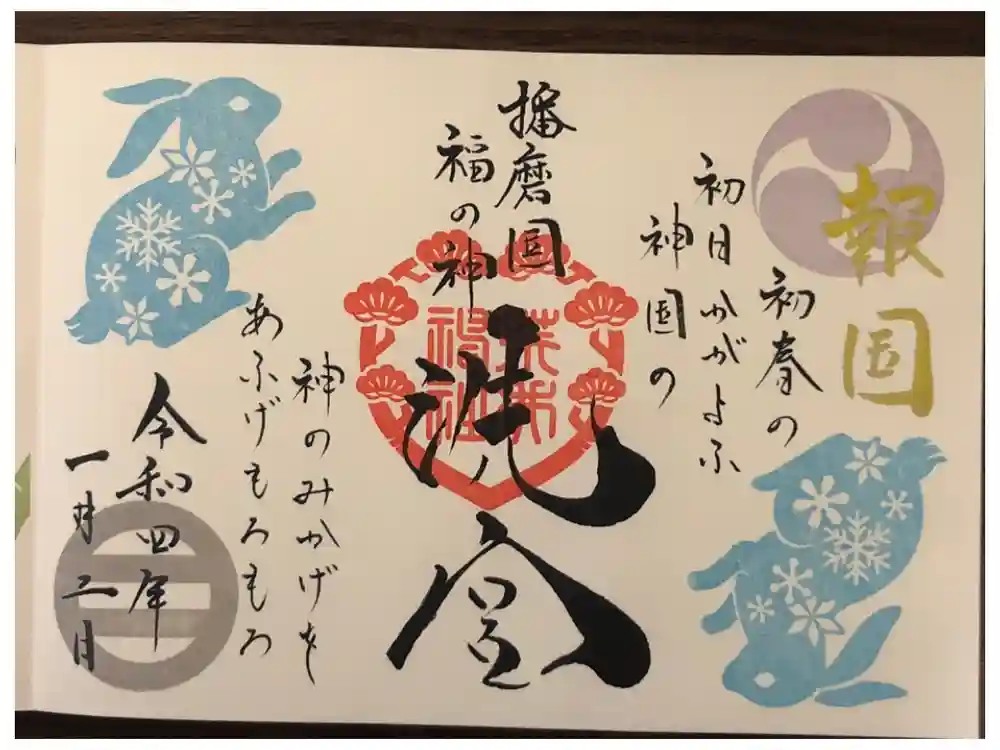 報国
初春の
初日かがよふ
神国の
播磨国
福の神
荒井
神社
神のみかげを
あふげもろもろ
令和四年
一月二日